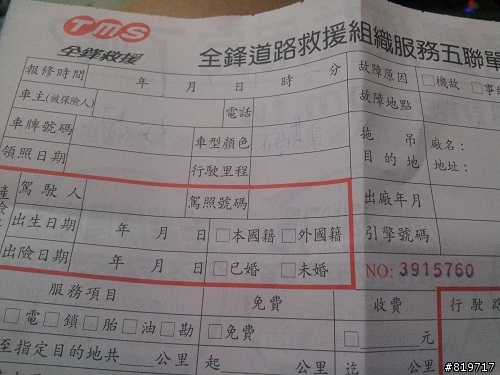 TMS
全鋒救援
全鋒道路救援組織服務五聯單
報修時間 年 月 日 時 分
故障原因 □機故 □事故
車主(被保險人) 電話
故障地點
車牌號碼 車型顏色
拖吊目的地 廠名:
地址:
領照日期 行駛里程
駕駛人 駕照號碼
出廠年月
出生日期 年 月 日 □本國籍 □外國籍
引擎號碼
出險日期 年 月 日 □已婚 □未婚
NO: 3915760
服務項目 免費 收費 行駛
□電 □鎖 □胎 □油 □勘 □免費 □ 元
至指定目的地共 公里 起 公里 迄 公里
#819717